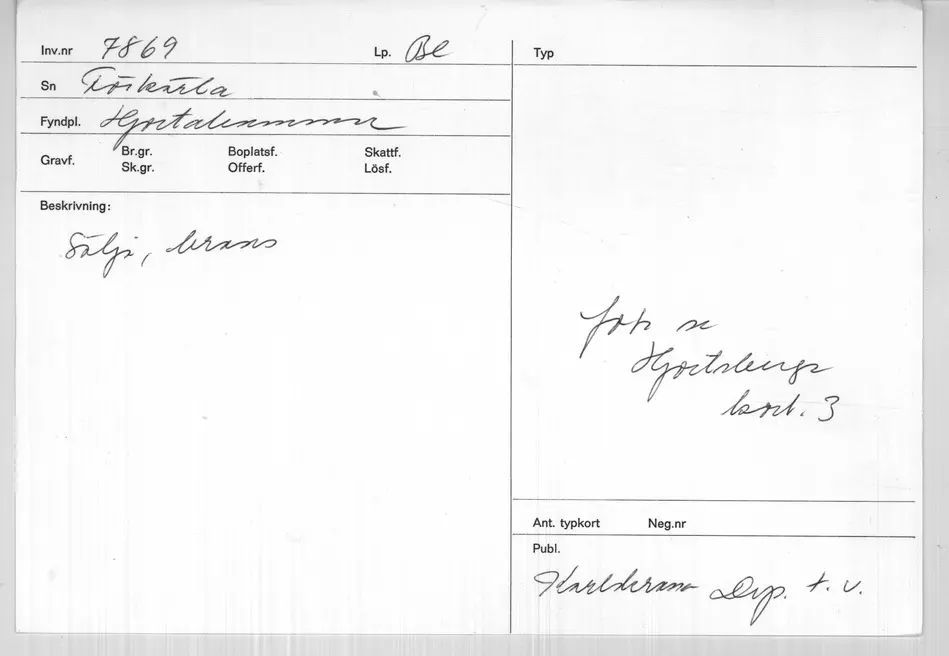 Inv.nr 7869 Lp. Bl
Sn Förkärla
Fyndpl. Hjortahammar
Gravf. Br.gr. Boplatsf. Skattf.
Sk.gr. Offerf. Lösf.
Beskrivning:
Sölja, brons
Typ
foto se
Hjortsberga
kort. 3
Ant. typkort Neg.nr
Publ.
Karlskrona Dep. t. v.